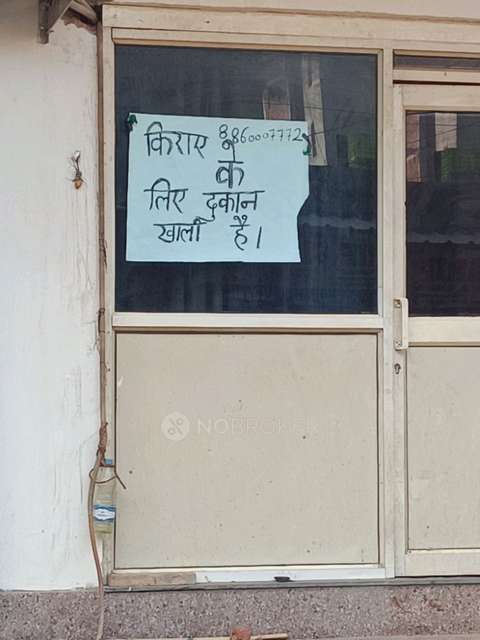 किराए के 8860007772
लिए दुकान
खाली है।
NOBROKER